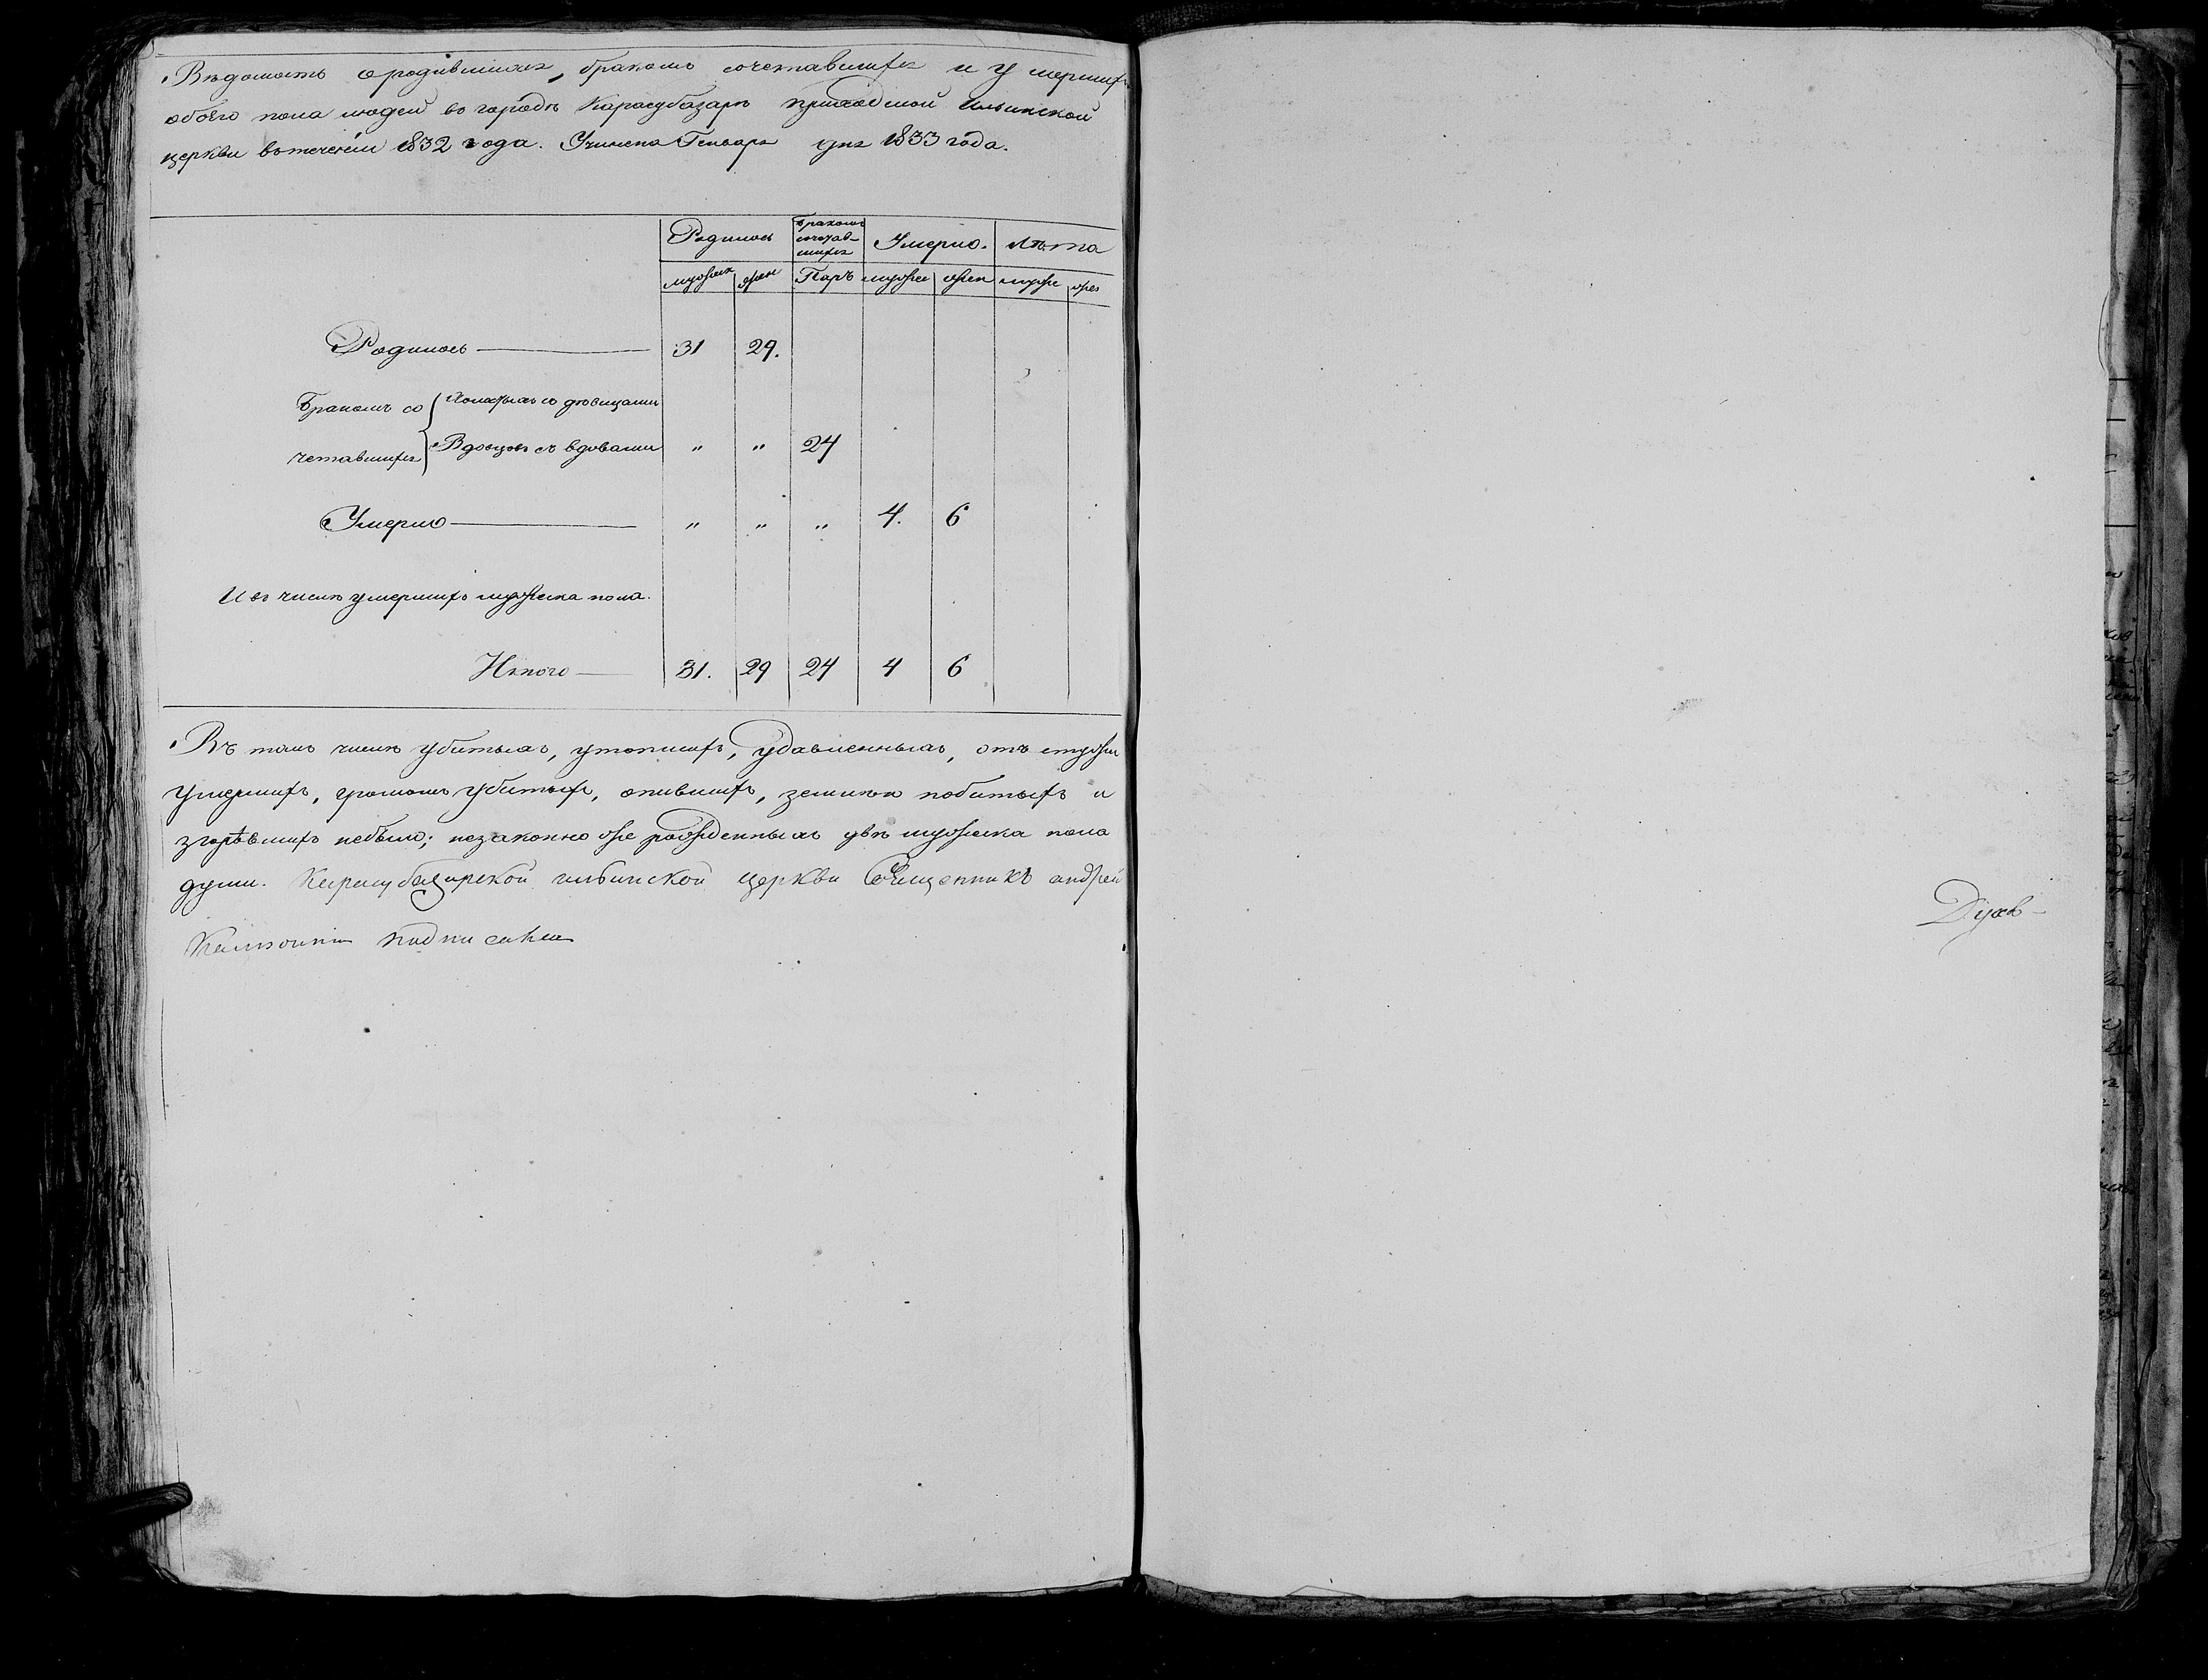 Вѣдомость о родившихся, бракомъ сочетавшихся и умершихъ
обоего пола людей въ городѣ Карасубазарѣ приходской Ильинской
церкви въ теченіи 1832 года. Учинена Генваря дня 1833 года.
Родилось Бракомъ сочетав-шихся Умерло. Лѣта
мужеск жен Паръ мужес жен муже жен
Родилось 31 29.
Бракомъ со Холостыхъ со дѣвицами
четавшихся Вдовцовъ съ вдовами " " 24
Умерло " " " 4. 6
И въ числѣ умершихъ мужеска пола.
Итого 31. 29 24 4 6
Въ томъ числѣ убитыхъ, утопшихъ, удавленныхъ, отъ стужи
умершихъ, громомъ убитыхъ, опившихъ, землею побитыхъ и
згорѣвшихъ небыло; незаконно же рожденныхъ двѣ мужеска пола
души. Карасубазарской ильинской церкви Священникъ андрей
подписался
Духов-